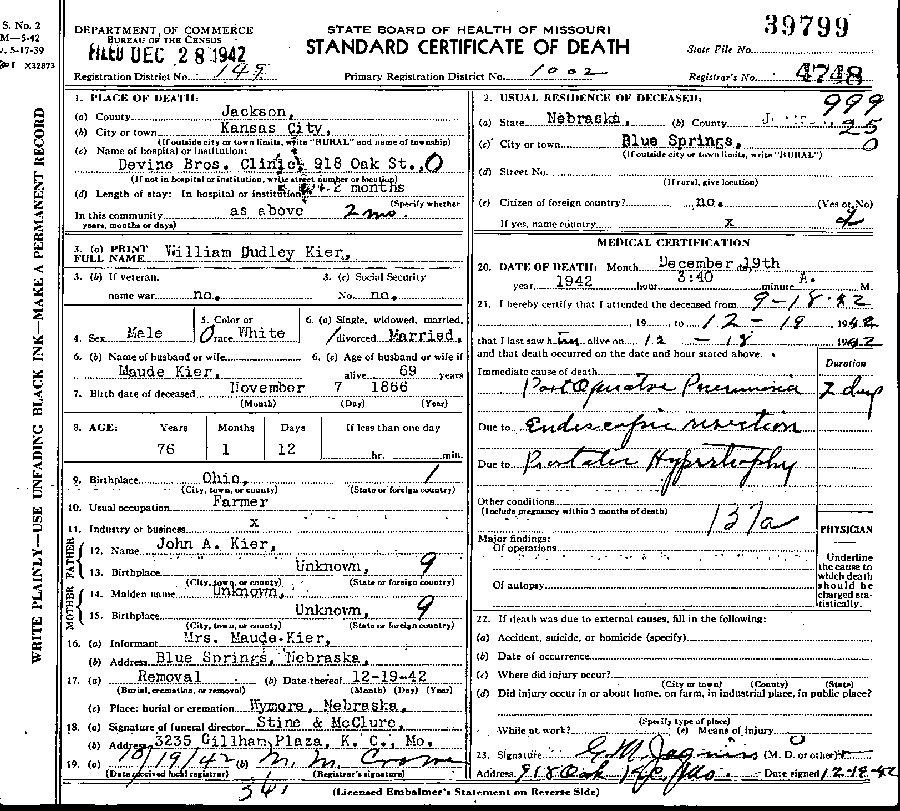 S. No. 2
M—5-42
v. 5-17-39
X32873
WRITE PLAINLY—USE UNFADING BLACK INK—MAKE A PERMANENT RECORD
DEPARTMENT OF COMMERCE
BUREAU OF THE CENSUS
FILED DEC 28 1942
Registration District No. 149
STATE BOARD OF HEALTH OF MISSOURI
STANDARD CERTIFICATE OF DEATH
Primary Registration District No. 1002
39799
State File No.
Registrar's No. 4748
1. PLACE OF DEATH:
(a) County Jackson,
(b) City or town Kansas City,
(If outside city or town limits, write "RURAL" and name of township)
(c) Name of hospital or institution:
Devine Bros. Clinic, 918 Oak St., 0
(If not in hospital or institution, write street number or location)
(d) Length of stay: In hospital or institution 2 months
(Specify whether
In this community as above 2 mo.
years, months or days)
3. (a) PRINT FULL NAME William Dudley Kier,
3. (b) If veteran, name war no.
3. (c) Social Security No. no.
4. Sex Male
5. Color or race White
6. (a) Single, widowed, married, divorced Married
6. (b) Name of husband or wife Maude Kier,
6. (c) Age of husband or wife if alive 69 years
7. Birth date of deceased November 7 1866
(Month) (Day) (Year)
8. AGE: Years Months Days If less than one day
76 1 12 hr. min.
9. Birthplace Ohio, 1
(City, town, or county) (State or foreign country)
10. Usual occupation Farmer
11. Industry or business x
FATHER
12. Name John A. Kier,
13. Birthplace Unknown, 9
(City, town, or county) (State or foreign country)
MOTHER
14. Maiden name Unknown,
15. Birthplace Unknown, 9
(City, town, or county) (State or foreign country)
16. (a) Informant Mrs. Maude Kier,
(b) Address Blue Springs, Nebraska,
17. (a) Removal (b) Date thereof 12-19-42
(Burial, cremation, or removal) (Month) (Day) (Year)
(c) Place: burial or cremation Wymore, Nebraska,
18. (a) Signature of funeral director Stine & McClure,
(b) Address 3235 Gillham Plaza, K. C., Mo.
19. (a) 12/19/42 (b) M. M. Crowe
(Date received local registrar) (Registrar's signature)
2. USUAL RESIDENCE OF DECEASED: 999
(a) State Nebraska, (b) County 25
(c) City or town Blue Springs, 0
(If outside city or town limits, write "RURAL")
(d) Street No.
(If rural, give location)
(e) Citizen of foreign country? no. (Yes or No)
If yes, name country x
MEDICAL CERTIFICATION
20. DATE OF DEATH: Month December day 19th
year 1942 hour 3:40 minute A. M.
21. I hereby certify that I attended the deceased from 9-18-42
19 to 12-19 1942
that I last saw him alive on 12-18 1942
and that death occurred on the date and hour stated above.
Duration
Immediate cause of death
Post Operative Pneumonia 2 days
Due to Endoscopic resection
Due to Prostatic Hypertrophy
Other conditions
(Include pregnancy within 3 months of death)
137a
PHYSICIAN
Major findings:
Of operations
Of autopsy
Underline the cause to which death should be charged statistically.
22. If death was due to external causes, fill in the following:
(a) Accident, suicide, or homicide (specify)
(b) Date of occurrence
(c) Where did injury occur?
(City or town) (County) (State)
(d) Did injury occur in or about home, on farm, in industrial place, in public place?
(Specify type of place)
While at work? (e) Means of injury
23. Signature (M. D. or other)
Address 918 Oak KC Mo Date signed 12-19-42
(Licensed Embalmer's Statement on Reverse Side)